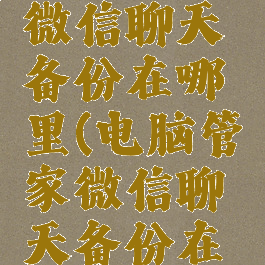 微信聊天
备份在哪
里(电脑管
家微信聊
天备份在